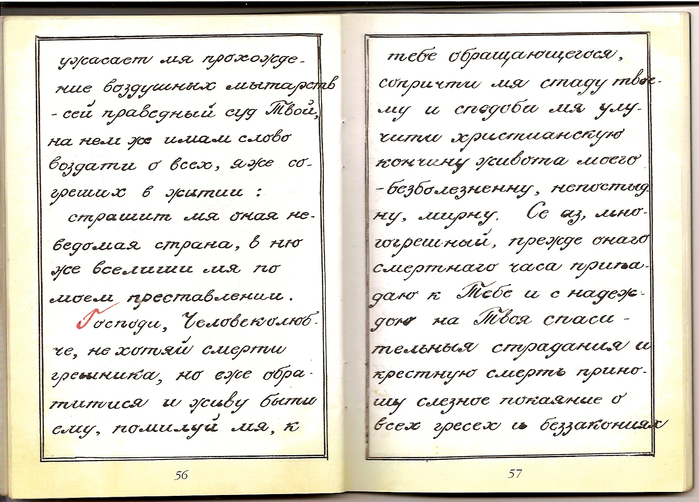 ужасает мя прохожде-
ние воздушных мытарств
- сей праведный суд Твой,
на нем же имам слово
воздати о всех, яже со-
греших в житии :
страшит мя оная не-
ведомая страна, в ню
же вселиши мя по
моем преставлении.
Господи, Человеколюб-
че, не хотяй смерти
грешника, но еже обра-
титися и живу быти
ему, помилуй мя, к
56
тебе обращающегося,
сопричти мя стаду твое-
му и сподоби мя улу-
чити христианскую
кончину живота моего
- безболезненну, непостыд
ну, мирну. Се аз, мно-
гогрешный, прежде онаго
смертнаго часа припа-
даю к Тебе и с надеж-
дою на Твоя спаси -
тельныя страдания и
крестную смерть прино-
шу слезное покаяние о
всех гресех и беззакониях
57